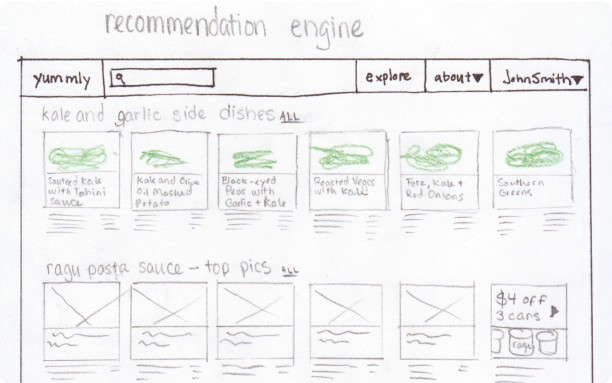 recommendation engine
yummly
explore
about
John Smith
kale and garlic side dishes ALL
Sauteed Kale
with Tahini
Sauce
Kale and Olive
Oil Mashed
Potato
Black-eyed
Peas with
Garlic + Kale
Roasted Veges
with Kale
Feta, Kale +
Red Onions
Southern
Greens
ragu pasta sauce – top pics ALL
$4 off
3 cans
ragu